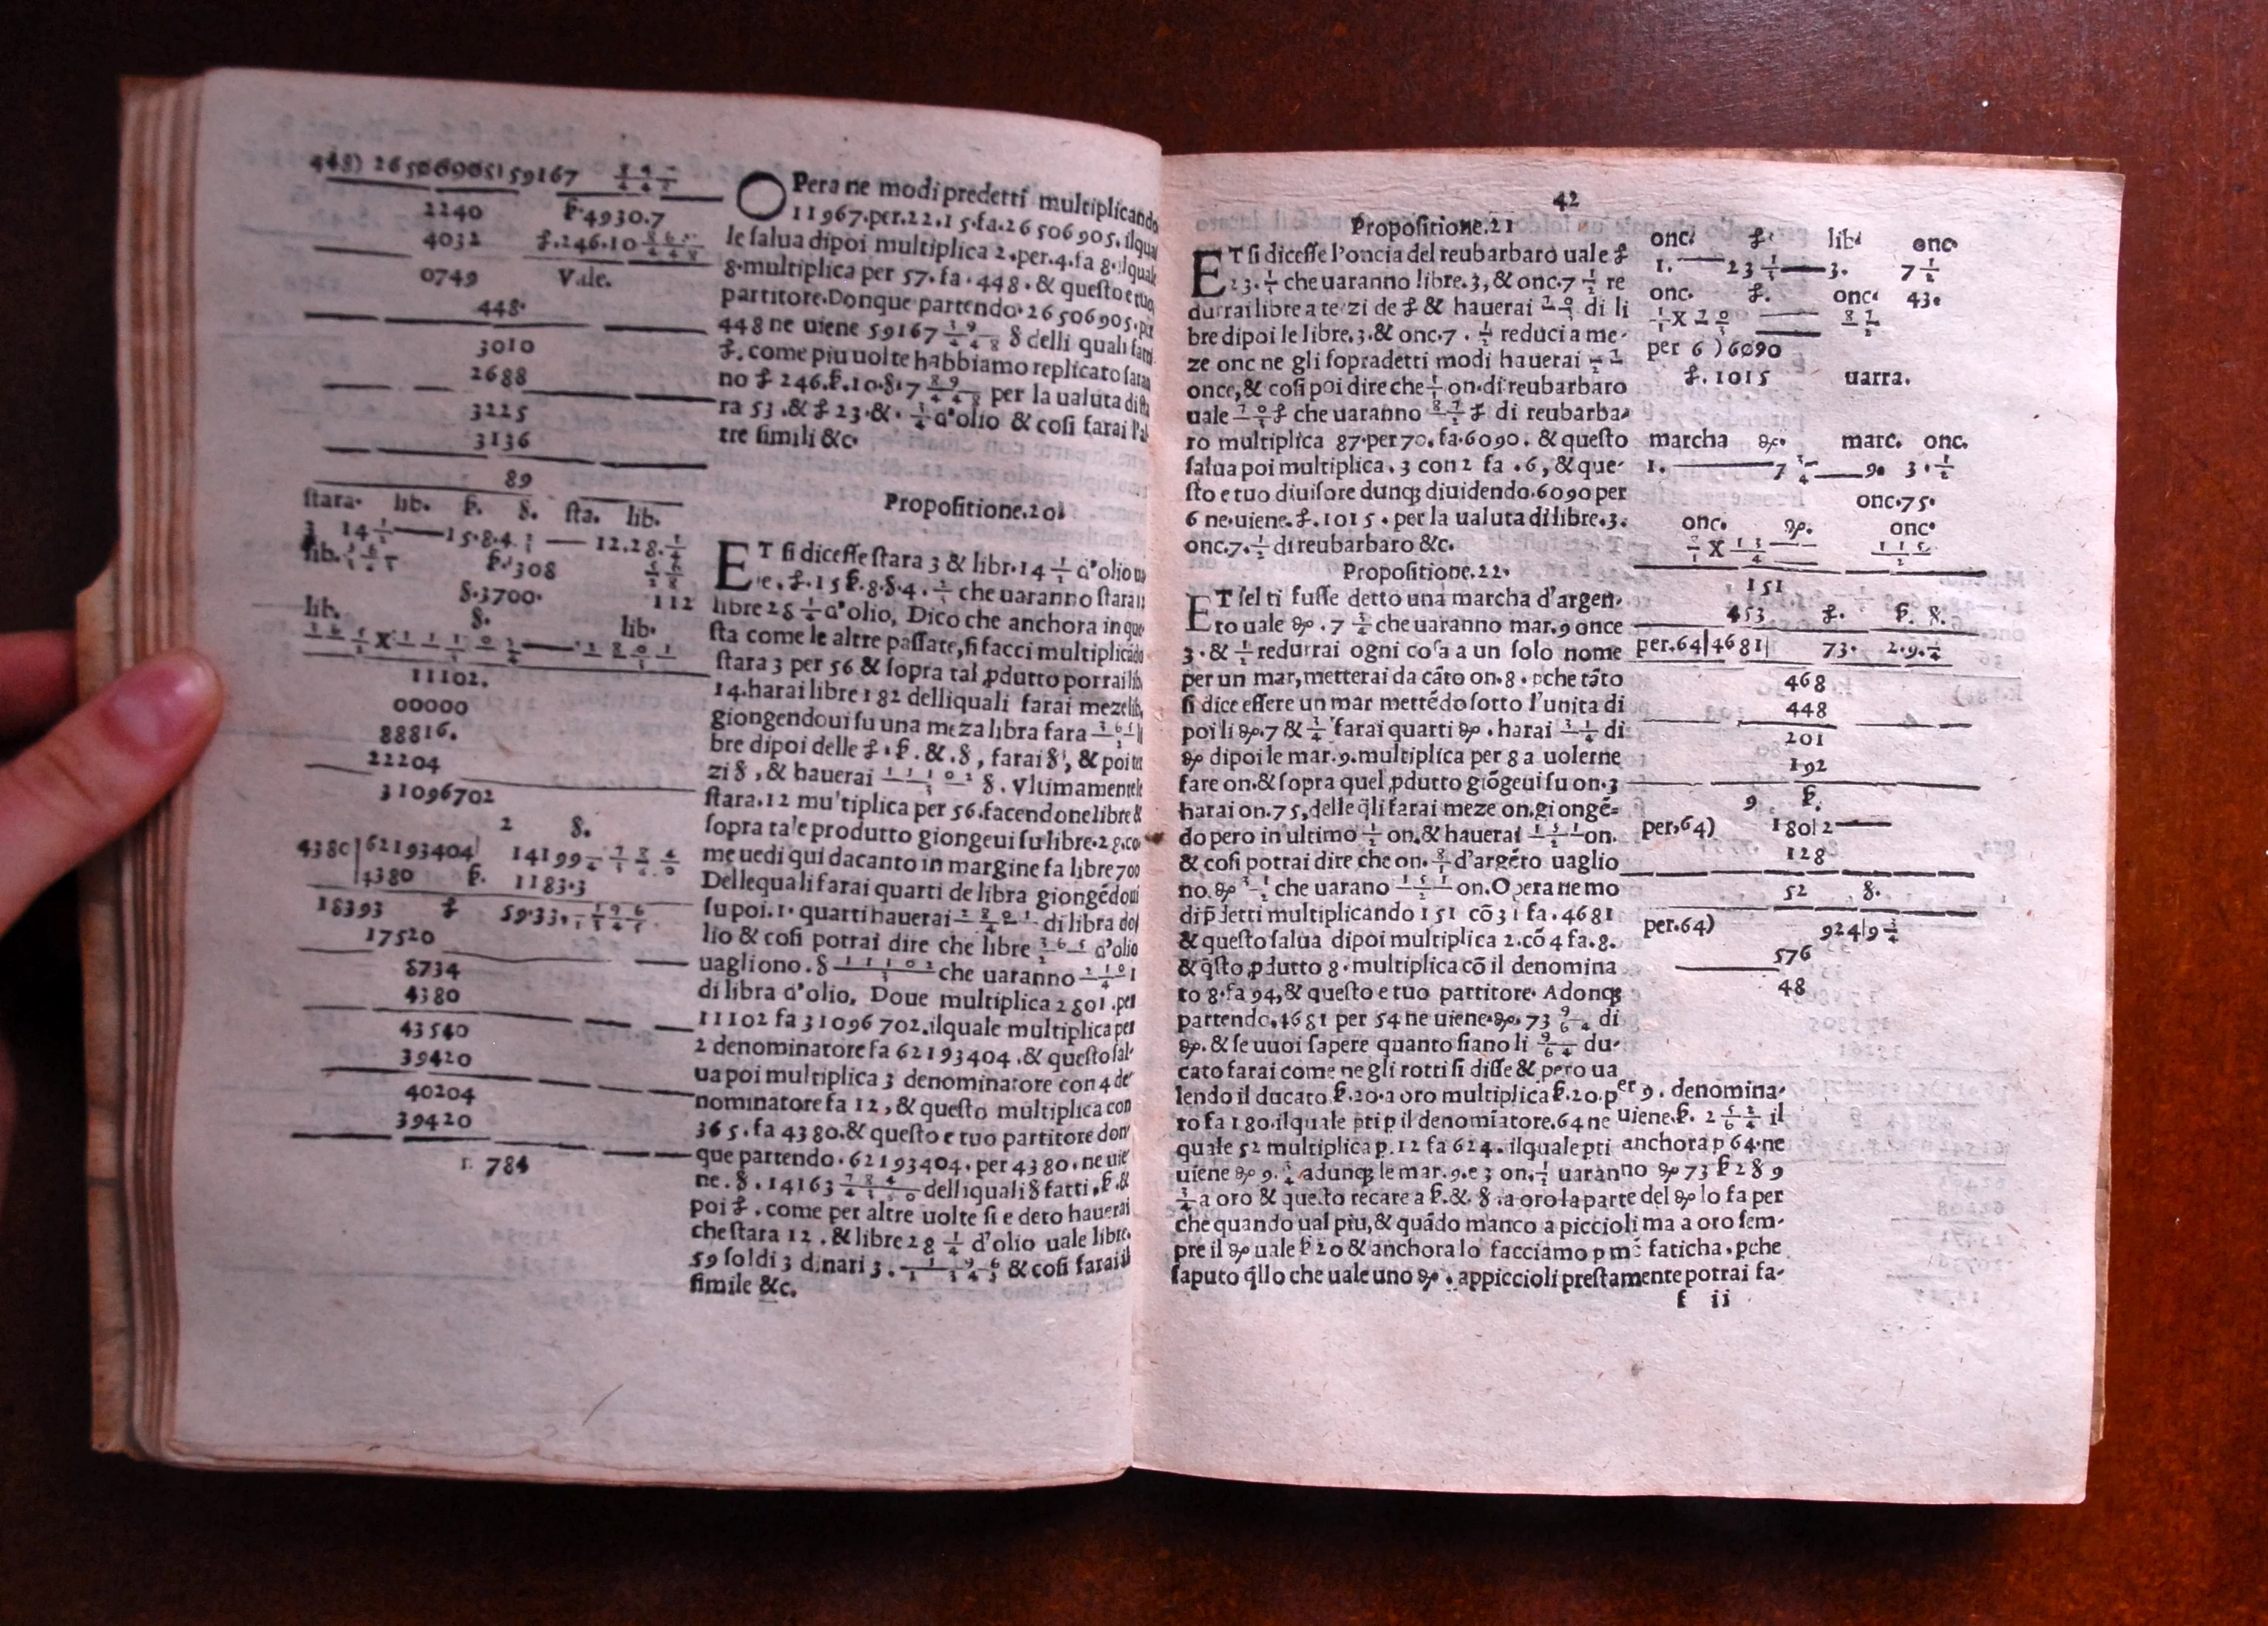 448) 26506905|59167
2240 ꝑ.4930.7
4032 £.246.10
0749 Vale.
448.
3010
2688
3225
3136
89
OPera ne modi predetti multiplicando
11967.per.22.15.fa.26506905.ilqua
le salua dipoi multiplica 2.per.4.fa 8.ilquale
8.multiplica per 57.fa.448.& questo e tuo
partitore.Donque partendo.26506905.per
448 ne uiene 59167 § delli quali fatti
£.come piu uolte habbiamo replicato saran
no £ 246.ꝑ.10.§.7 per la ualuta di sta
ra 53.& £ 23.&. ¾ d'olio & cosi farai l'al
tre simili &c.
stara. lib. ꝑ. §. sta. lib.
3 14 ½ — 15.8.4. — 12.28.¼
lib. ꝑ.308
§.3700. 112
lib. §. lib.
11102.
00000
88816.
22204
31096702
2 §.
4380|62193404| 14199
4380 ꝑ. 1183.3
18393 £ 59.33.
17520
8734
4380
43540
39420
40204
39420
784
Propositione.20.
ET si dicesse stara 3 & libr.14 ½ d'olio ua
le.£.15 ꝑ.8.§.4. che uaranno stara 12
libre 28 ¼ d'olio, Dico che anchora in que
sta come le altre passate, si facci multiplicādo
stara 3 per 56 & sopra tal ꝓdutto porrai lib.
14.harai libre 182 delliquali farai meze lib.
giongendoui su una meza libra fara li
bre dipoi delle £.ꝑ.&.§, farai §, & poi ter
zi §, & hauerai §. Vltimamente le
stara.12 multiplica per 56.facendone libre &
sopra tale produtto giongeui su libre.28.co
me uedi qui dacanto in margine fa libre 700
Dellequali farai quarti de libra giongēdoui
su poi.1.quarti hauerai di libra do
lio & cosi potrai dire che libre d'olio
uagliono.§ che uaranno
di libra d'olio, Doue multiplica 2801.per
11102 fa 31096702.ilquale multiplica per
2 denominatore fa 62193404.& questo sal-
ua poi multiplica 3 denominatore con 4 de
nominatore fa 12, & questo multiplica con
365.fa 4380.& questo e tuo partitore don
que partendo.62193404.per 4380.ne uie
ne.§.14163 delliquali § fatti.ꝑ.&
poi £.come per altre uolte si e deto hauerai
che stara 12.& libre 28 ¼ d'olio uale libre.
59 soldi 3 dinari 3. & cosi farai il
simile &c.
42
Propositione.21
ET si dicesse l'oncia del reubarbaro uale £
23.⅓ che uaranno libre.3, & onc.7 ½ re
durrai libre a terzi de £ & hauerai di li
bre dipoi le libre.3.& onc.7.½ reduci a me-
ze onc ne gli sopradetti modi hauerai
once, & cosi poi dire che on.di reubarbaro
uale £ che uaranno £ di reubarba-
ro multiplica 87.per 70.fa.6090.& questo
salua poi multiplica.3 con 2 fa.6, & que-
sto e tuo diuisore dunqꝫ diuidendo.6090 per
6 ne.uiene.£.1015.per la ualuta di libre.3.
onc.7.½ di reubarbaro &c.
onc. £. lib. onc.
1. — 23 ⅓ — 3. 7 ½
onc. £. onc. 43.
per 6 )6090
£.1015 uarra.
Propositione.22.
ET sel ti fusse detto una marcha d'argen-
to uale ₰.7 ¾ che uaranno mar.9 once
3.& ½ redurrai ogni cosa a un solo nome
per un mar, metterai da cāto on.8.pche tāto
si dice essere un mar mettēdo sotto l'unita di
poi li ₰.7 & ¾ farai quarti ₰.harai di
₰ dipoi le mar.9.multiplica per 8 a uolerne
fare on.& sopra quel ꝓdutto giōgeui su on.3
harai on.75, delle q̄li farai meze on.giongē-
do pero in ultimo ½ on.& hauerai on.
& cosi potrai dire che on. d'argēto uaglio
no.₰ che uarano on.Opera ne mo
di p̄detti multiplicando 151 cō 31 fa.4681
& questo salua dipoi multiplica 2.cō 4 fa.8.
& q̄sto ꝓdutto 8.multiplica cō il denomina
to 8.fa 94, & questo e tuo partitore. Adonqꝫ
partendo.4681 per 54 ne uiene.₰.73 di
₰.& se uuoi sapere quanto siano li du-
cato farai come ne gli rotti si disse & pero ua
lendo il ducato ꝑ.20.a oro multiplica ꝑ.20.per 9.denomina-
to fa 180.ilquale pti p il denomīatore.64 ne uiene.ꝑ.2 il
quale 52 multiplica p.12 fa 624.ilquale pti anchora p 64.ne
uiene ₰ 9.¾ adunqꝫ le mar.9.e 3 on.½ uaranno ₰ 73 ꝑ 2 § 9
¾ a oro & questo recare a ꝑ.& §.a oro la parte del ₰ lo fa per
che quando ual piu, & quādo manco a piccioli ma a oro sem-
pre il ₰ uale ꝑ 20 & anchora lo facciamo p mē faticha.pche
saputo q̄llo che uale uno ₰.appiccioli prestamente potrai fa-
marcha ₰. marc. onc.
1. — 7 ¾ — 9. 3.½
onc.75.
onc. ₰. onc.
151
453 £. ꝑ. §.
per.64|4681| 73. 2.9.¾
468
448
201
192
9 ꝑ.
per.64) 180|2
128
52 §.
per.64) 924|9 ¾
576
48
f ii